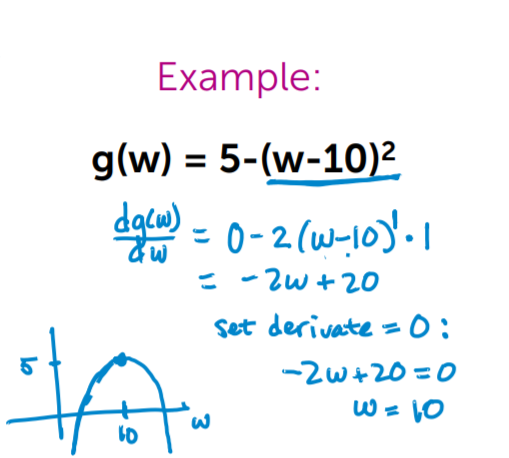 Example:
g(w) = 5-(w-10)²
dg(w)/dw = 0 - 2(w-10)¹ · 1
= -2w + 20
set derivate = 0:
-2w + 20 = 0
w = 10
5
10
w